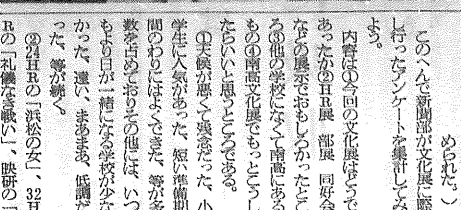 められた。）
このへんで新聞部が文化展に際
し行ったアンケートを集計してみ
よう。
内容は①今回の文化展はどうで
あったか②ＨＲ展　部展　同好会
などの展示でおもしろかったとこ
ろ③他の学校になくて南高にある
もの④南高文化展でもっとこうし
たらいいと思うところである。
①天候が悪くて残念だった、小
学生に人気があった、短い準備期
間のわりにはよくできた、等が多
数を占めておりその他には、いつ
もより日が一緒になる学校がな
かった、遠い、まあまあ、低調だ
った、等が続く。
②24ＨＲの「浜松の女」、32Ｈ
Ｒの「礼儀なき戦い」、映研の「